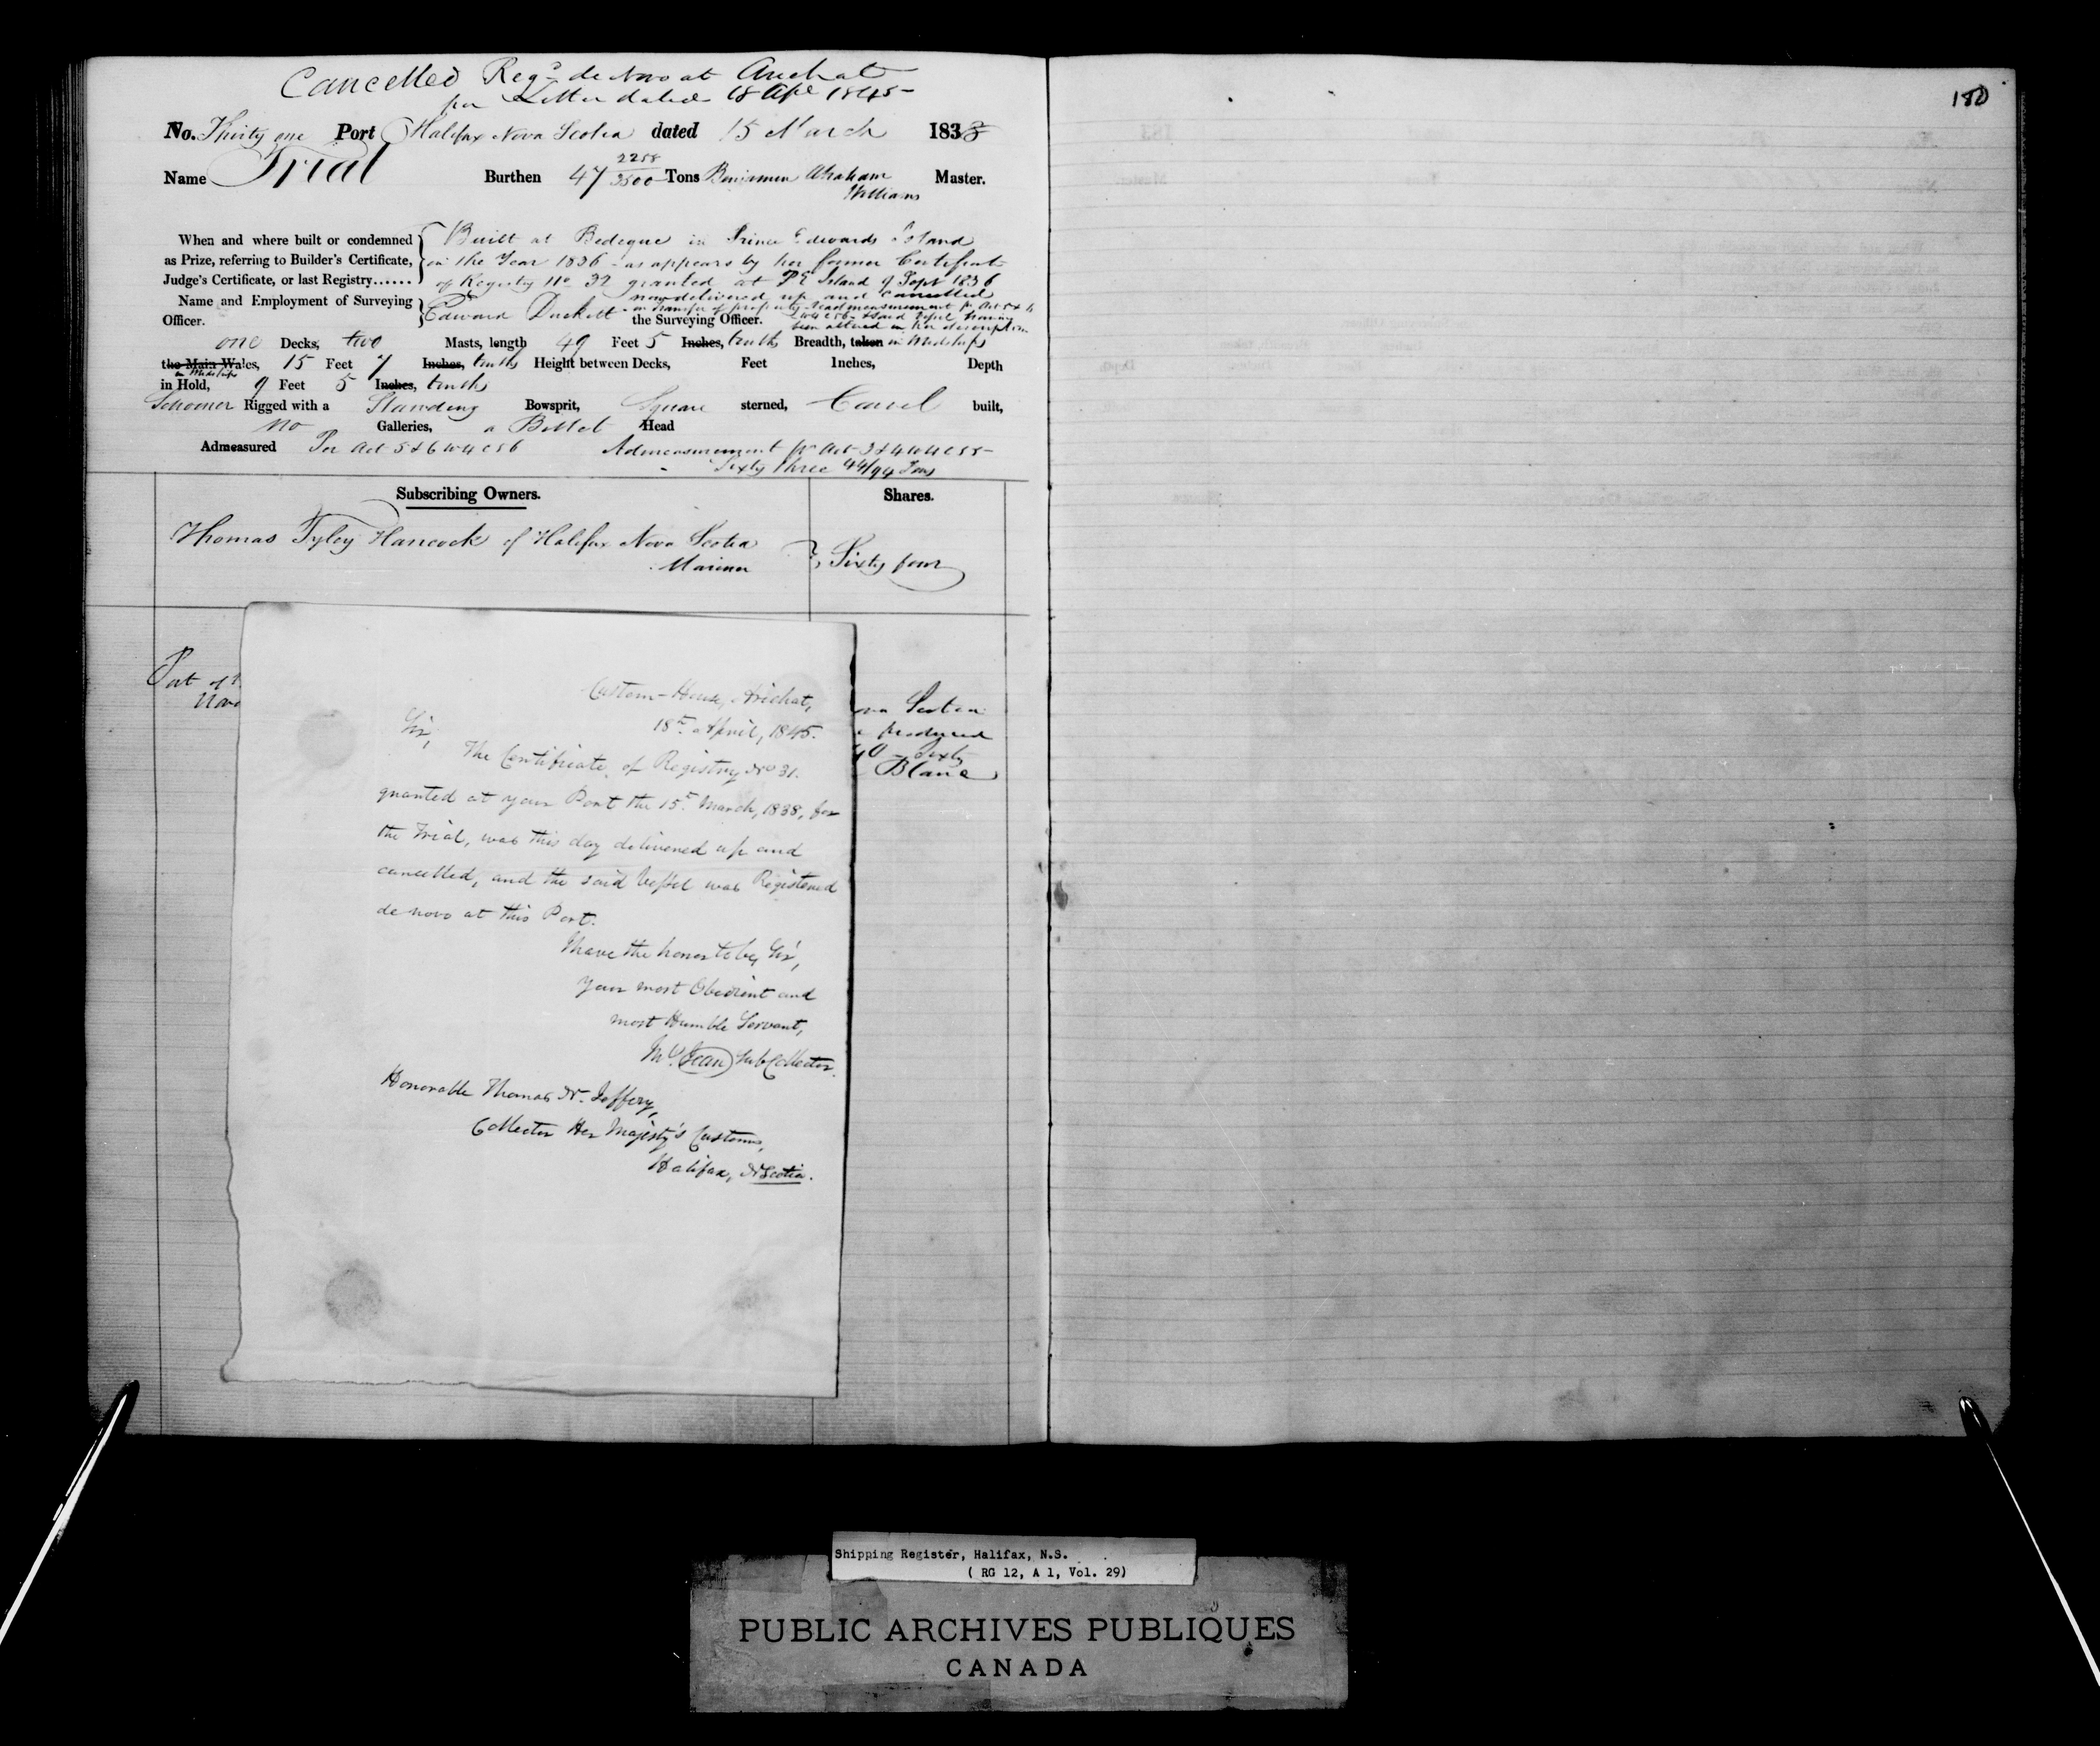 Cancelled Regd de Novo at Arichat
per Letter dated 18 Apl 1845
180
No. Thirty one Port Halifax Nova Scotia dated 15 March 1838
Name Trial Burthen 47 2258/3500 Tons Benjamin Abraham Williams Master.
When and where built or condemned as Prize, referring to Builder's Certificate, Judge's Certificate, or last Registry......
Built at Bedeque in Prince Edwards Island
in the Year 1836 as appears by her former Certificate
of Registry No 32 granted at P E Island 9 Sept 1836
now delivered up and cancelled
Name and Employment of Surveying Officer.
Edward Duckett the Surveying Officer.
on transfer of property & readmeasurement pr Act 5 & 6
W4 C56 & said Vessel having
been altered in her description
one Decks, two Masts, length 49 Feet 5 Inches, tenths Breadth, taken in Midships
the Main Wales, 15 Feet 7 Inches, tenths Height between Decks, Feet Inches, Depth
in Midships
in Hold, 9 Feet 5 Inches, tenths
Schooner Rigged with a Standing Bowsprit, Square sterned, Carvel built,
no Galleries, a Billet Head
Admeasured Per Act 5 & 6 W4 C56 Admeasurement pr Act 3 & 4 W4 C55
Sixty three 44/94 Tons
Subscribing Owners. Shares.
Thomas Tyley Hancock of Halifax Nova Scotia
Mariner
Sixty four
Port of
Nova
Scotia
produced
Sixty
Blanc
Custom-House, Arichat,
18th April, 1845.
Sir,
The Certificate of Registry No 31.
granted at your Port the 15th March, 1838, for
the Trial, was this day delivered up and
cancelled, and the said Vessel was Registered
de novo at this Port.
I have the honor to be, Sir,
Your most Obedient and
most Humble Servant,
Sub Collector.
Honorable Thomas N. Jeffery,
Collector Her Majesty's Customs,
Halifax, N Scotia.
Shipping Register, Halifax, N.S.
( RG 12, A 1, Vol. 29)
PUBLIC ARCHIVES PUBLIQUES
CANADA